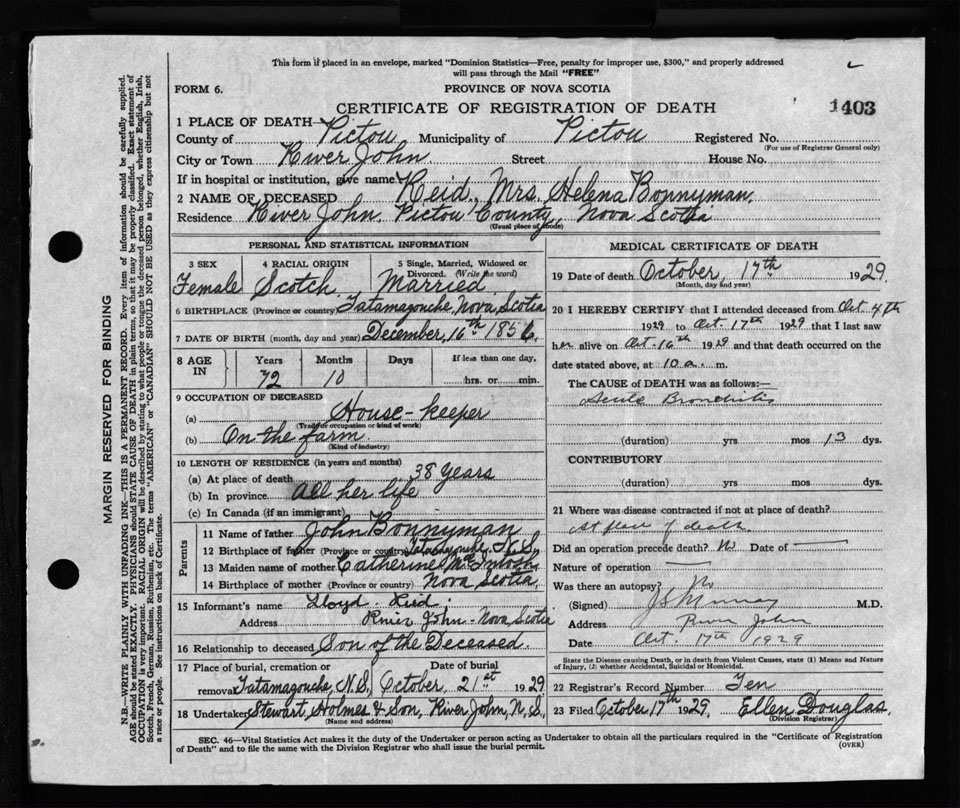 This form if placed in an envelope, marked "Dominion Statistics—Free, penalty for improper use, $300," and properly addressed
will pass through the Mail "FREE"
FORM 6.
PROVINCE OF NOVA SCOTIA
CERTIFICATE OF REGISTRATION OF DEATH
1403
1 PLACE OF DEATH
County of Pictou Municipality of Pictou Registered No.
(For use of Registrar General only)
City or Town River John Street House No.
If in hospital or institution, give name
2 NAME OF DECEASED Reid, Mrs. Helena Bonnyman.
Residence River John, Pictou County, Nova Scotia
(Usual place of abode)
PERSONAL AND STATISTICAL INFORMATION
3 SEX Female
4 RACIAL ORIGIN Scotch
5 Single, Married, Widowed or Divorced. (Write the word) Married
6 BIRTHPLACE (Province or country) Tatamagouche, Nova Scotia
7 DATE OF BIRTH (month, day and year) December, 16th 1856.
8 AGE IN Years 72 Months 10 Days If less than one day, hrs. or min.
9 OCCUPATION OF DECEASED
(a) House-keeper
(Trade or occupation or kind of work)
(b) On the farm.
(Kind of industry)
10 LENGTH OF RESIDENCE (in years and months)
(a) At place of death 38 years
(b) In province All her life
(c) In Canada (if an immigrant)
Parents
11 Name of father John Bonnyman
12 Birthplace of father (Province or country) Tatamagouche, N.S.
13 Maiden name of mother Catherine McIntosh
14 Birthplace of mother (Province or country) Nova Scotia,
15 Informant's name Lloyd Reid,
Address River John - Nova Scotia
16 Relationship to deceased Son of the Deceased.
17 Place of burial, cremation or removal Tatamagouche, N.S. Date of burial October, 21st 1929
18 Undertaker Stewart, Holmes & Son, River John, N.S.
(Name and address)
MEDICAL CERTIFICATE OF DEATH
19 Date of death October, 17th 1929.
(Month, day and year)
20 I HEREBY CERTIFY that I attended deceased from Oct 4th
1929 to Oct. 17th 1929 that I last saw
her alive on Oct. 16th 1929 and that death occurred on
date stated above, at 10 a. m.
The CAUSE of DEATH was as follows:—
Acute Bronchitis
(duration) yrs mos 13 dys.
CONTRIBUTORY
(duration) yrs mos dys.
21 Where was disease contracted if not at place of death?
At place of death
Did an operation precede death? No Date of
Nature of operation
Was there an autopsy? No
(Signed) J S Murray M.D.
Address River John
Date Oct. 17th 1929
State the Disease causing Death, or in death from Violent Causes, state (1) Means and Nature
of Injury, (2) whether Accidental, Suicidal or Homicidal.
22 Registrar's Record Number Ten
23 Filed October 17th 1929, Ellen Douglas,
(Division Registrar)
SEC. 46—Vital Statistics Act makes it the duty of the Undertaker or person acting as Undertaker to obtain all the particulars required in the "Certificate of Registration
of Death" and to file the same with the Division Registrar who shall issue the burial permit.
(OVER)
MARGIN RESERVED FOR BINDING
N.B.—WRITE PLAINLY WITH UNFADING INK—THIS IS A PERMANENT RECORD. Every item of information should be carefully supplied.
AGE should be stated EXACTLY. PHYSICIANS should STATE CAUSE OF DEATH in plain terms, so that it may be properly classified. Exact statement of
OCCUPATION is very important. RACIAL ORIGIN will be described by stating to what people or tongue the deceased person belonged, whether English, Irish,
Scotch, French, German, Russian, Ruthenian, etc. The terms "AMERICAN" or "CANADIAN" SHOULD NOT BE USED as they express citizenship but not
a race or people. See instructions on back of Certificate.